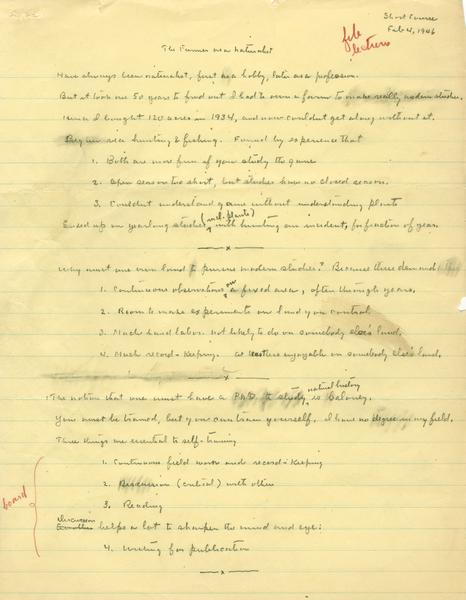 Short Course
Feb 4, 1946
file
lectures
The Farmer as a Naturalist
Have always been naturalist, first as a hobby, later as a profession.
But it took me 50 years to find out I had to own a farm to make really modern studies.
Hence I bought 120 acres in 1934, and now couldn't get along without it.
Began via hunting & fishing. Found by experience that
1. Both are more fun if you study the game
2. Open season too short, but studies have no closed season.
3. Couldn't understand game without understanding plants
Ended up on yearlong studies (incl. plants) with hunting an incident, for fraction of year.
x
Why must one own land to pursue modern studies? Because these demand:
1. Continuous observations on a fixed area, often through years.
2. Room to make experiments on land you control
3. Much hard labor. Not likely to do on somebody else's land.
4. Much record-keeping. Less enjoyable on somebody else's land.
x
The notion that one must have a PhD to study natural history is baloney.
You must be trained, but you can train yourself. I have no degree in my field.
Three things are essential to self-training
board
1. Continuous field work and record-keeping
2. Discussion (critical) with others
3. Reading
discussion helps a lot to sharpen the mind and eye:
4. Writing for publication
x